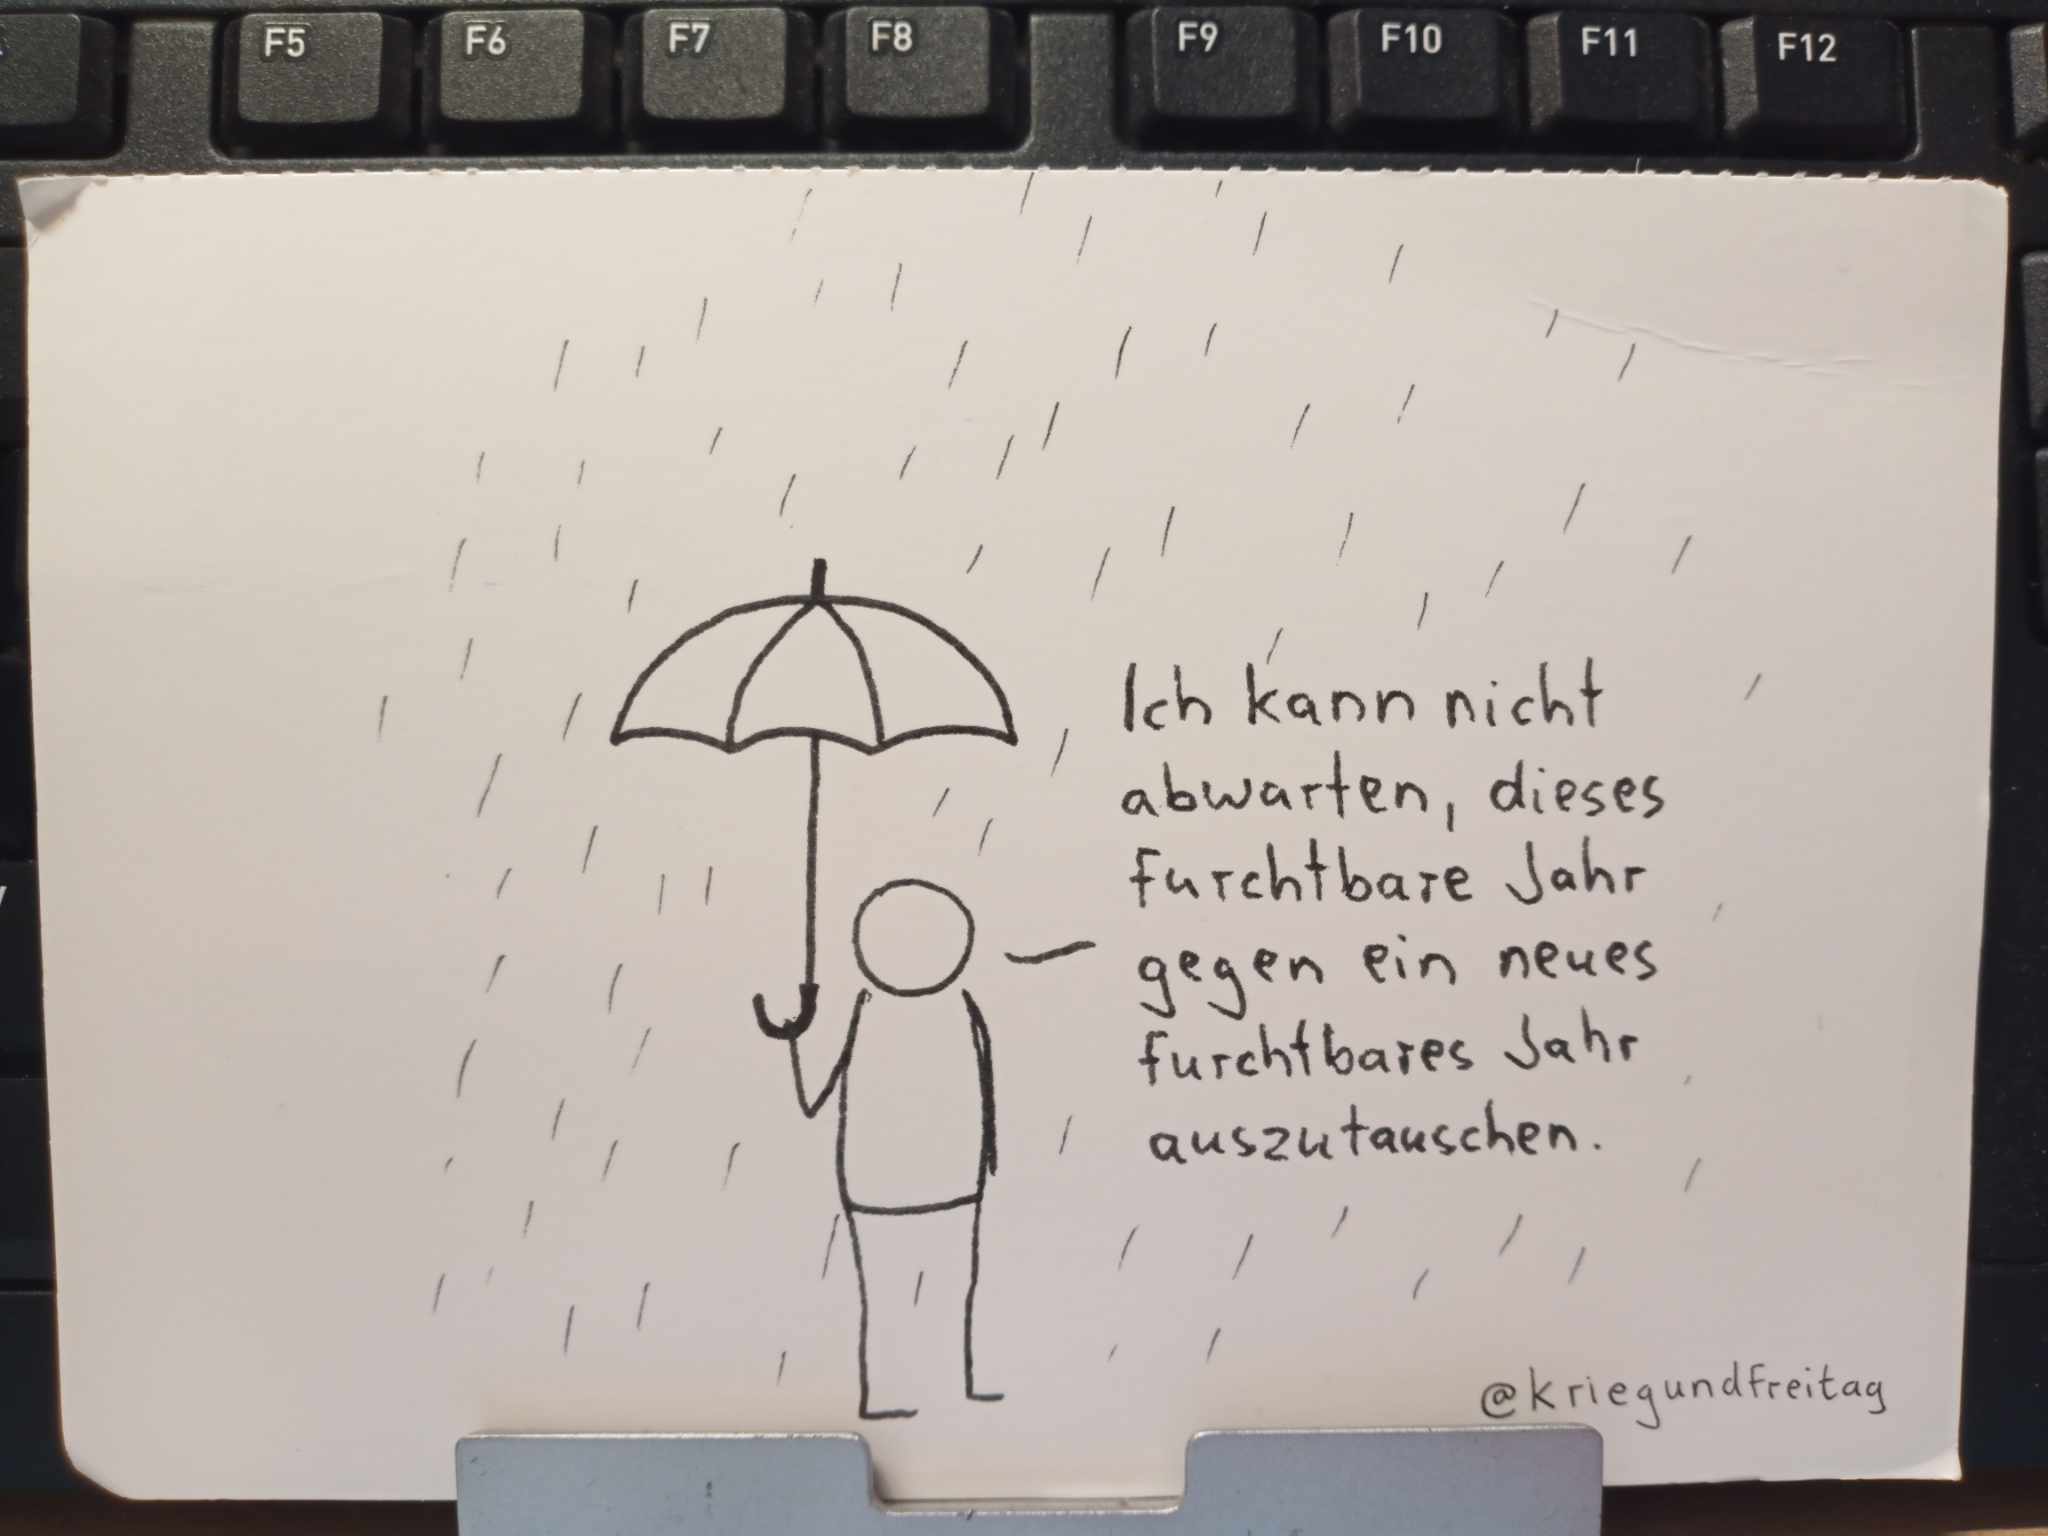 F5 F6 F7 F8 F9 F10 F11 F12
Ich kann nicht
abwarten, dieses
furchtbare Jahr
gegen ein neues
furchtbares Jahr
auszutauschen.
@kriegundfreitag